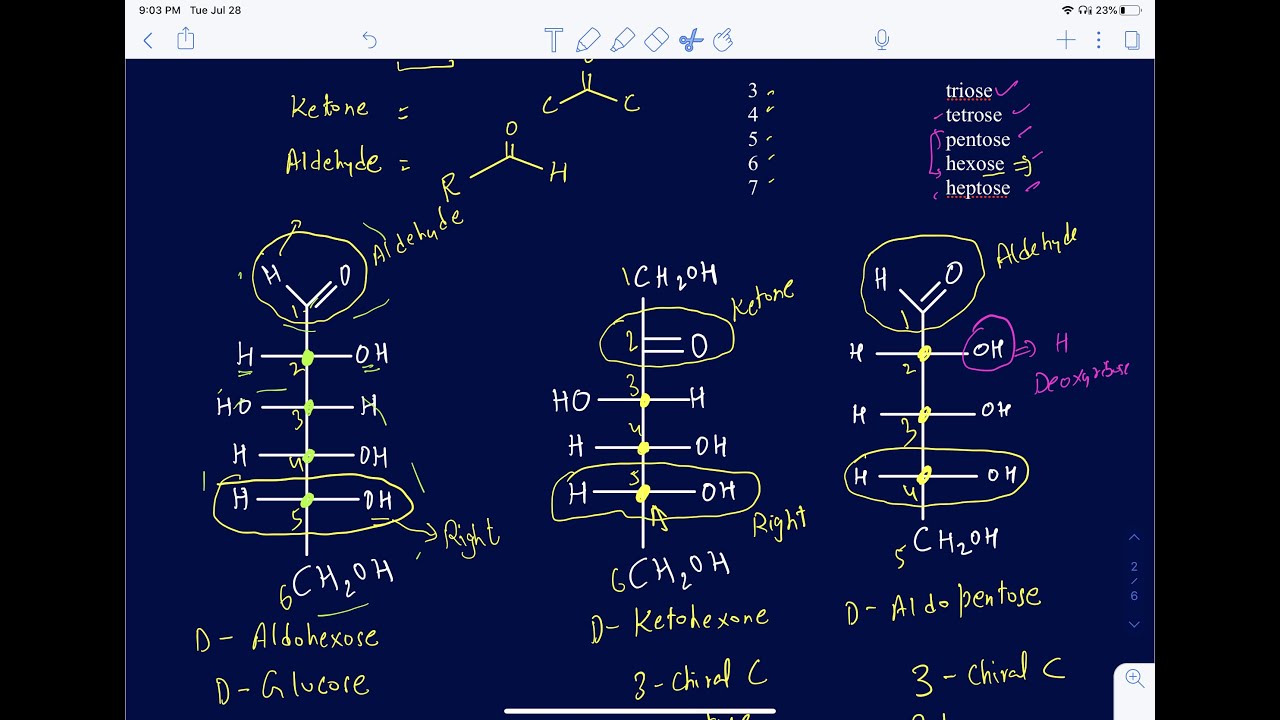 9:03 PM Tue Jul 28
23%
T
Ketone =
C C
Aldehyde =
O
R H
3
4
5
6
7
triose
tetrose
pentose
hexose
heptose
H O
Aldehyde
1
H OH
2
HO H
3
H OH
4
H OH
5
Right
6 CH2OH
D - Aldohexose
D - Glucose
1 CH2OH
Ketone
2 O
3
HO H
4
H OH
5
H OH
Right
6 CH2OH
D - Ketohexone
3 - Chiral C
H O
Aldehyde
1
H OH ⇒ H
2
Deoxyribose
H OH
3
H OH
4
5 CH2OH
D - Aldopentose
3 - Chiral C
2
/
6